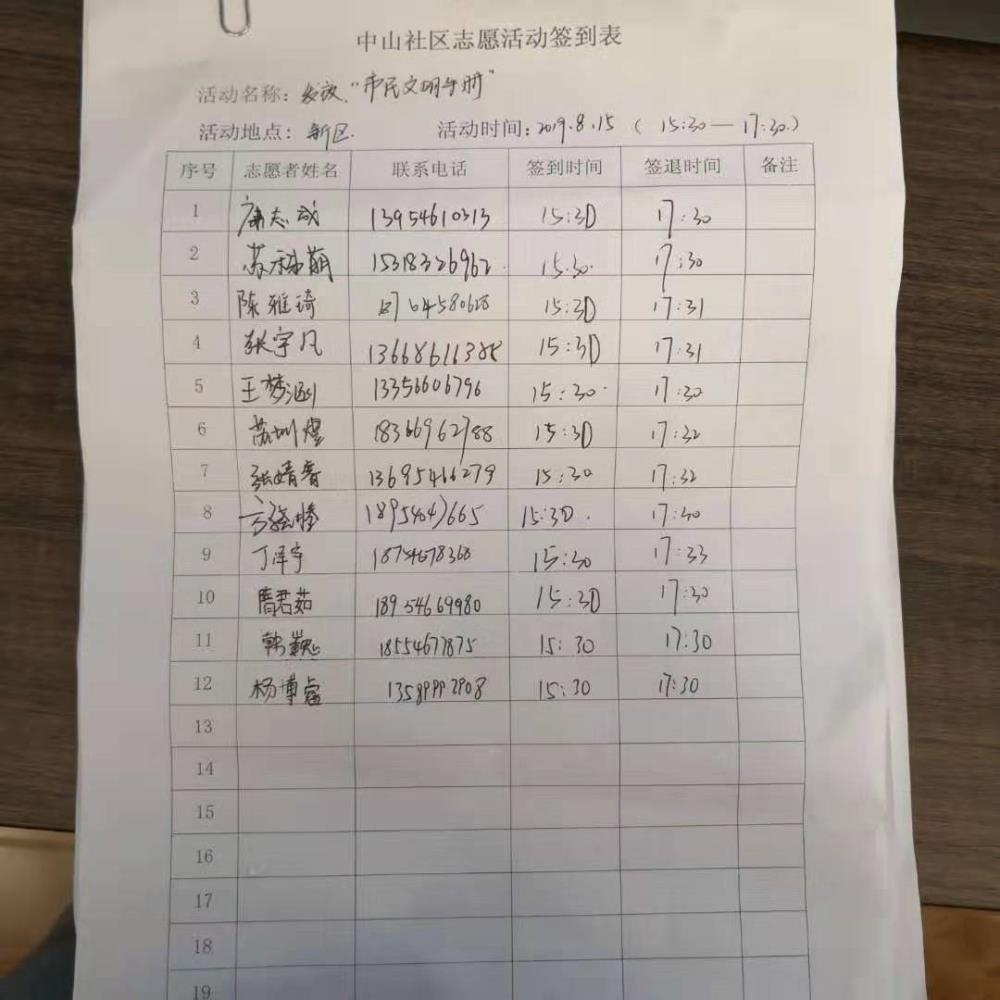 中山社区志愿活动签到表
活动名称：发放"市民文明手册"
活动地点：新区. 活动时间：2019.8.15 ( 15:30 — 17:30.)
序号 志愿者姓名 联系电话 签到时间 签退时间 备注
1 志成 13954610313 15:30 17:30
2 苏 萌 15318326962 15:30 17:30
3 陈雅琦 15:30 17:31
4 张宇凡 15:30 17:31
5 王梦涵 13356606796 15:30 17:30
6 苏圳煌 18366962788 15:30 17:32
7 张婧春 13695466279 15:30 17:32
8 15:30 17:30
9 丁泽宇 18754678368 15:30 17:33
10 君茹 18954669980 15:30 17:30
11 韩巍 18554677875 15:30 17:30
12 杨博睿 13589992908 15:30 17:30
13
14
15
16
17
18
19